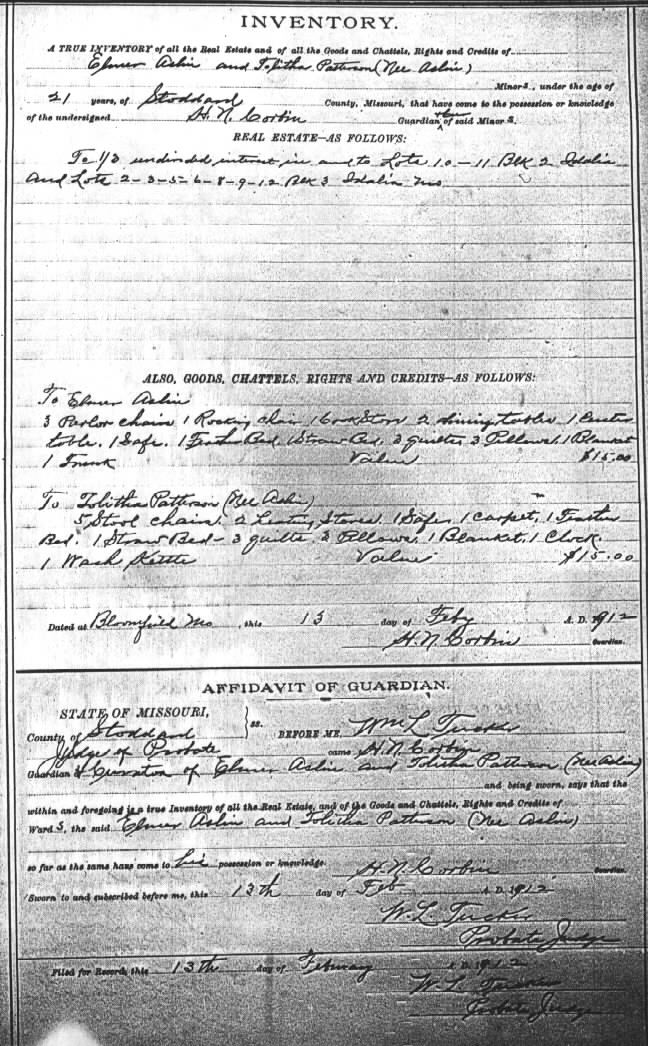 INVENTORY.
A TRUE INVENTORY of all the Real Estate and of all the Goods and Chattels, Rights and Credits of
Elmer Aslin and Tobitha Patterson (Nee Aslin)
Minors, under the age of
21 years, of Stoddard County, Missouri, that have come to the possession or knowledge
of the undersigned H. N. Corbin Guardian of said Minors.
REAL ESTATE—AS FOLLOWS:
To 1/3 undivided interest in and to Lots 10-11 Blk 2 Idalia
and Lots 2-3-5-6-8-9-12 Blk 3 Idalia Mo
ALSO, GOODS, CHATTELS, RIGHTS AND CREDITS—AS FOLLOWS:
To Elmer Aslin
3 Parlor chairs 1 Rocking chair 1 Cook Stove 2 dining tables 1 Center
table. 1 Safe. 1 Feather Bed 1 Straw Bed. 3 quilts 3 Pillows. 1 Blanket
1 Trunk Value $15.00
To Tobitha Patterson (Nee Aslin)
5 Stool chairs. 2 Heating Stoves. 1 Safe 1 carpet, 1 Feather
Bed. 1 Straw Bed - 3 quilts 3 Pillows. 1 Blanket. 1 Clock.
1 Wash Kettle Value $15.00
Dated at Bloomfield Mo, this 13 day of Feby A. D. 1912
H. N. Corbin Guardian.
AFFIDAVIT OF GUARDIAN.
STATE OF MISSOURI,
County of Stoddard } ss. BEFORE ME, Wm L Tucker
Judge of Probate came H. N. Corbin
Guardian & Curator of Elmer Aslin and Tobitha Patterson (Nee Aslin)
and being sworn, says that the
within and foregoing is a true Inventory of all the Real Estate, and of the Goods and Chattels, Rights and Credits of
Wards, the said Elmer Aslin and Tobitha Patterson (Nee Aslin)
so far as the same have come to his possession or knowledge. H. N. Corbin Guardian.
Sworn to and subscribed before me, this 13th day of Feb A. D. 1912
W. L. Tucker
Probate Judge
Filed for Record, this 13th day of February A. D. 1912
W. L. Tucker
Probate Judge